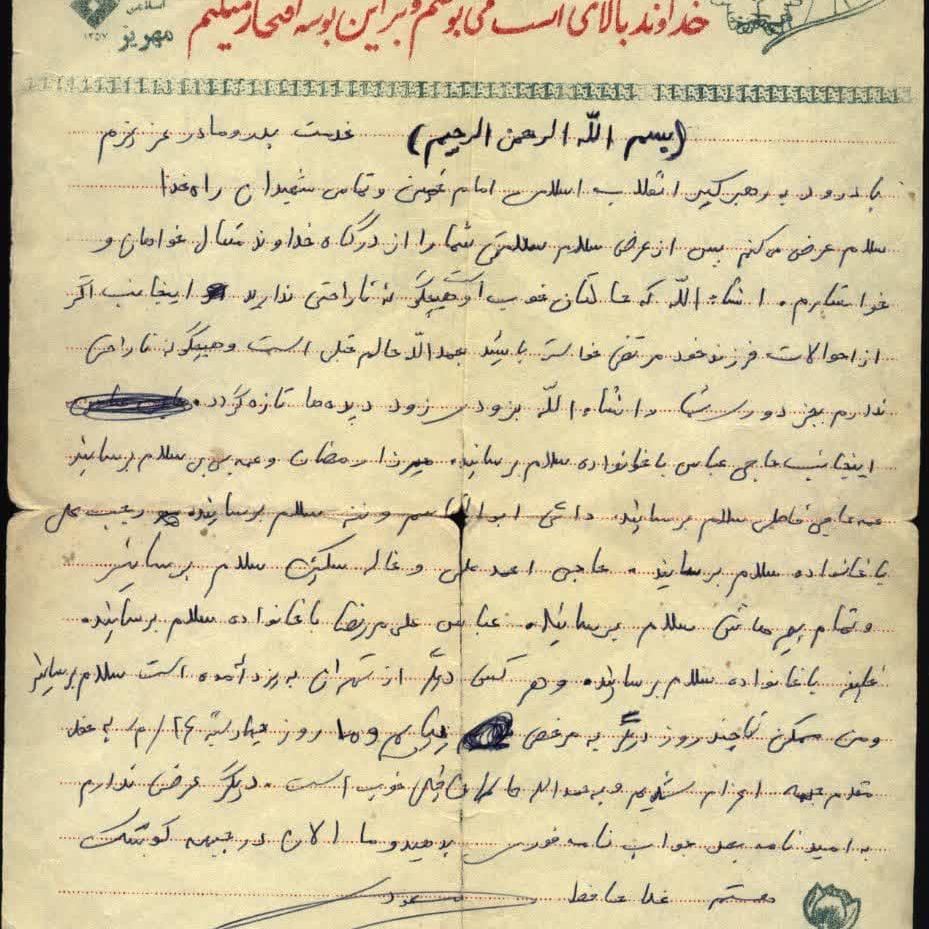 خداوند بالای است می بوسم و بر این بوسه افتخار میکنم
اسلامی
مهریز
۱۳۵۷
(بسم اللّه الرحمن الرحیم) خدمت پدر و مادر عزیزم
با درود به رهبر کبیر انقلاب اسلامی امام خمینی و تمامی شهیدان راه خدا
سلام عرض می کنم پس از عرض سلام سلامتی شما را از درگاه خداوند متعال خواهان و
خواستارم. انشاء اللّه که حالتان خوب است و هیچگونه ناراحتی ندارید اینجانب اگر
از احوالات فرزند خود مرتضی خواسته باشید بحمد اللّه حالم خیلی است و هیچگونه ناراحتی
ندارم بجز دوری شما انشاء اللّه بزودی زود دیدهها تازه گردد.
اینجانب حاجی عباس با خانواده سلام برسانید. میرزا رمضان و عمه بی بی سلام برسانید
عمه حاجی فاطمی سلام برسانید. داشی ابوالقاسم و ننه سلام برسانید رجب علی
با خانواده سلام برسانید. حاجی احمد علی و خاله سکینه سلام برسانید
و تمام سلام برسانید. عباس علی مرزضا با خانواده سلام برسانید.
با خانواده سلام برسانید. و هر کس دیگر از تهران به یزد آمده است سلام برسانید
و من ممکن تا چند روز دیگر به مرخصی روز به خط
مقدم جبهه اعزام شدیم و بحمد الله خیلی خوب است. دیگر عرضی ندارم
به امید نامه بعد جواب نامه فوری بدهید و ما الان در جبهه کوشک
هستم خدا حافظ